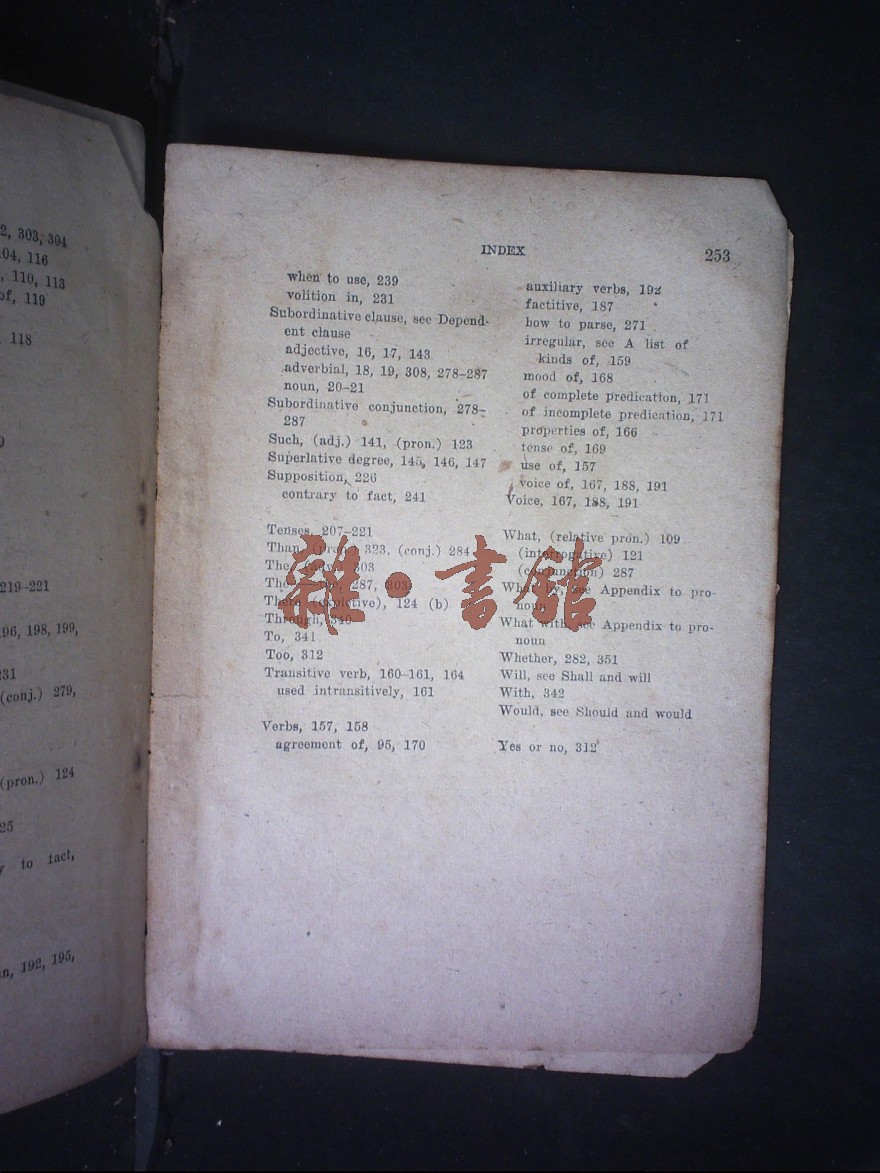 2, 303, 304
04, 116
, 110, 113
of, 119
118
219–221
96, 198, 199,
231
(conj.) 279,
(pron.) 124
25
to fact,
192, 195,
INDEX
253
when to use, 239
volition in, 231
Subordinative clause, see Depend-
ent clause
adjective, 16, 17, 143
adverbial, 18, 19, 308, 278–287
noun, 20–21
Subordinative conjunction, 278–
287
Such, (adj.) 141, (pron.) 123
Superlative degree, 145, 146, 147
Supposition, 226
contrary to fact, 241
Tenses, 207–221
Than, (prep.) 323, (conj.) 284
The, (adv.) 303
287, 303
There (expletive), 124 (b)
Through, 340
To, 341
Too, 312
Transitive verb, 160–161, 164
used intransitively, 161
Verbs, 157, 158
agreement of, 95, 170
auxiliary verbs, 192
factitive, 187
how to parse, 271
irregular, see A list of
kinds of, 159
mood of, 168
of complete predication, 171
of incomplete predication, 171
properties of, 166
tense of, 169
use of, 157
voice of, 167, 188, 191
Voice, 167, 188, 191
What, (relative pron.) 109
(interrogative) 121
(conjunction) 287
see Appendix to pro-
noun
What with, see Appendix to pro-
noun
Whether, 282, 351
Will, see Shall and will
With, 342
Would, see Should and would
Yes or no, 312
雜·書館